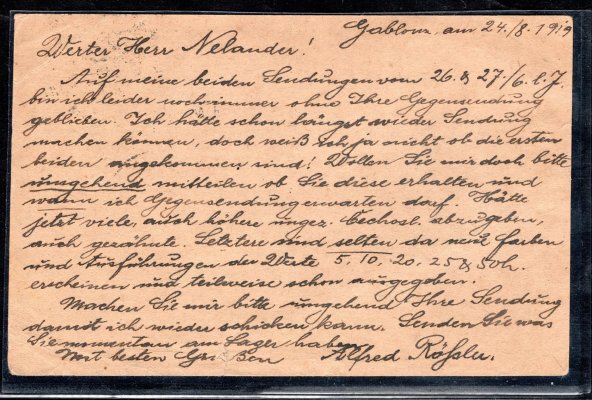 Gablonz, am 24./8. 1919
Werter Herr Nelander!
Auf meine beiden Sendungen vom 26. & 27./6. l. J.
bin ich leider noch immer ohne Ihre Gegensendung
geblieben. Ich hätte schon längst wieder Sendung
machen können, doch weiß ich ja nicht ob die ersten
beiden angekommen sind! Wollen Sie mir doch bitte
umgehend mitteilen ob Sie diese erhalten und
wann ich Gegensendung erwarten darf. Hätte
jetzt viele, auch höhere ungez. Cechosl. abzugeben,
auch gezähnte. Letztere sind selten da neue Farben
und Ausführungen der Werte 5. 10. 20. 25 & 50 h.
erscheinen und teilweise schon ausgegeben.
Machen Sie mir bitte umgehend Ihre Sendung
damit ich wieder schicken kann. Senden Sie was
Sie momentan am Lager haben.
Mit besten Grüßen Alfred Rössler.